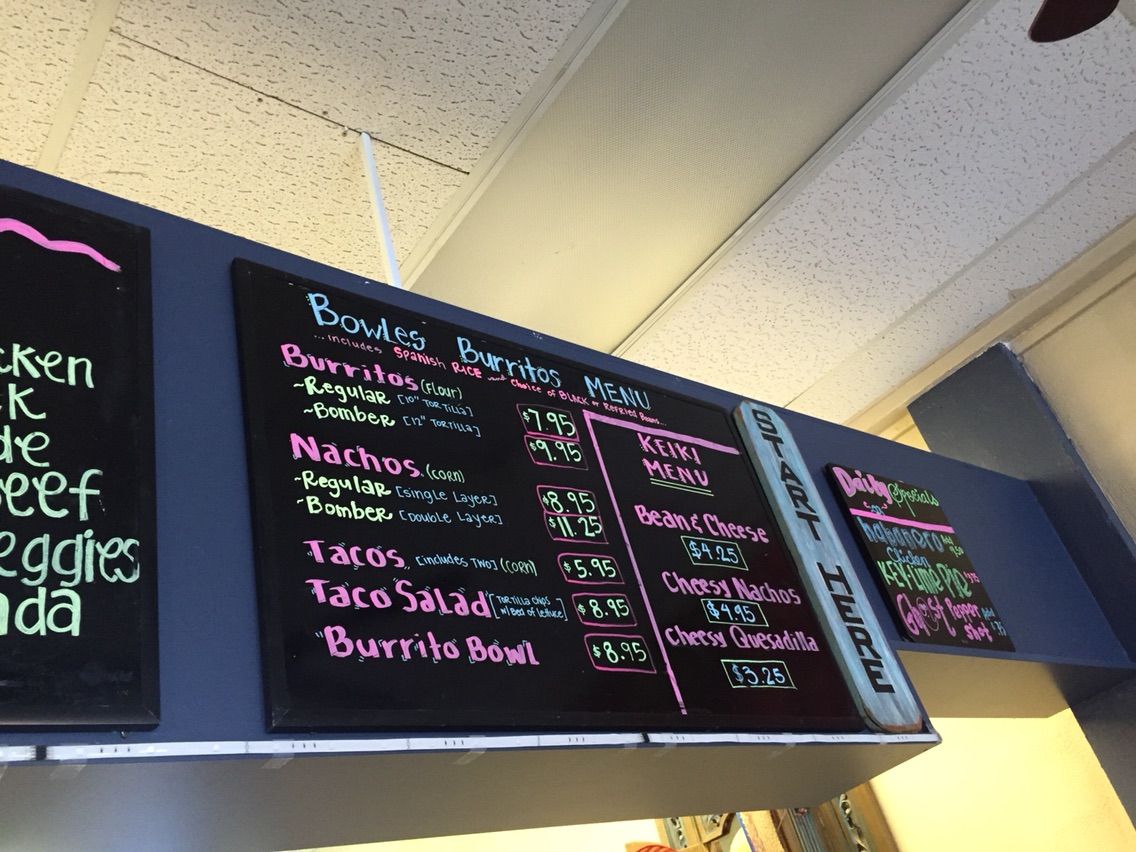 Bowles Burritos MENU
...includes Spanish RICE and Choice of BLACK or Refried Beans...
Burritos (Flour)
~Regular [10" TORTILLA] $7.95
~Bomber [12" TORTILLA] $9.95
Nachos (CORN)
~Regular [Single Layer] $8.95
~Bomber [Double Layer] $11.25
Tacos [includes TWO] (CORN) $5.95
Taco Salad [TORTILLA CHIPS w/ Bed of lettuce] $8.95
"Burrito Bowl $8.95
KEIKI
MENU
Bean & Cheese
$4.25
Cheesy Nachos
$4.95
Cheesy Quesadilla
$3.25
START HERE
Daily Specials
habanero
Chicken
KEY lime PIE
Ghost Pepper
cken
k
de
eef
eggies
da